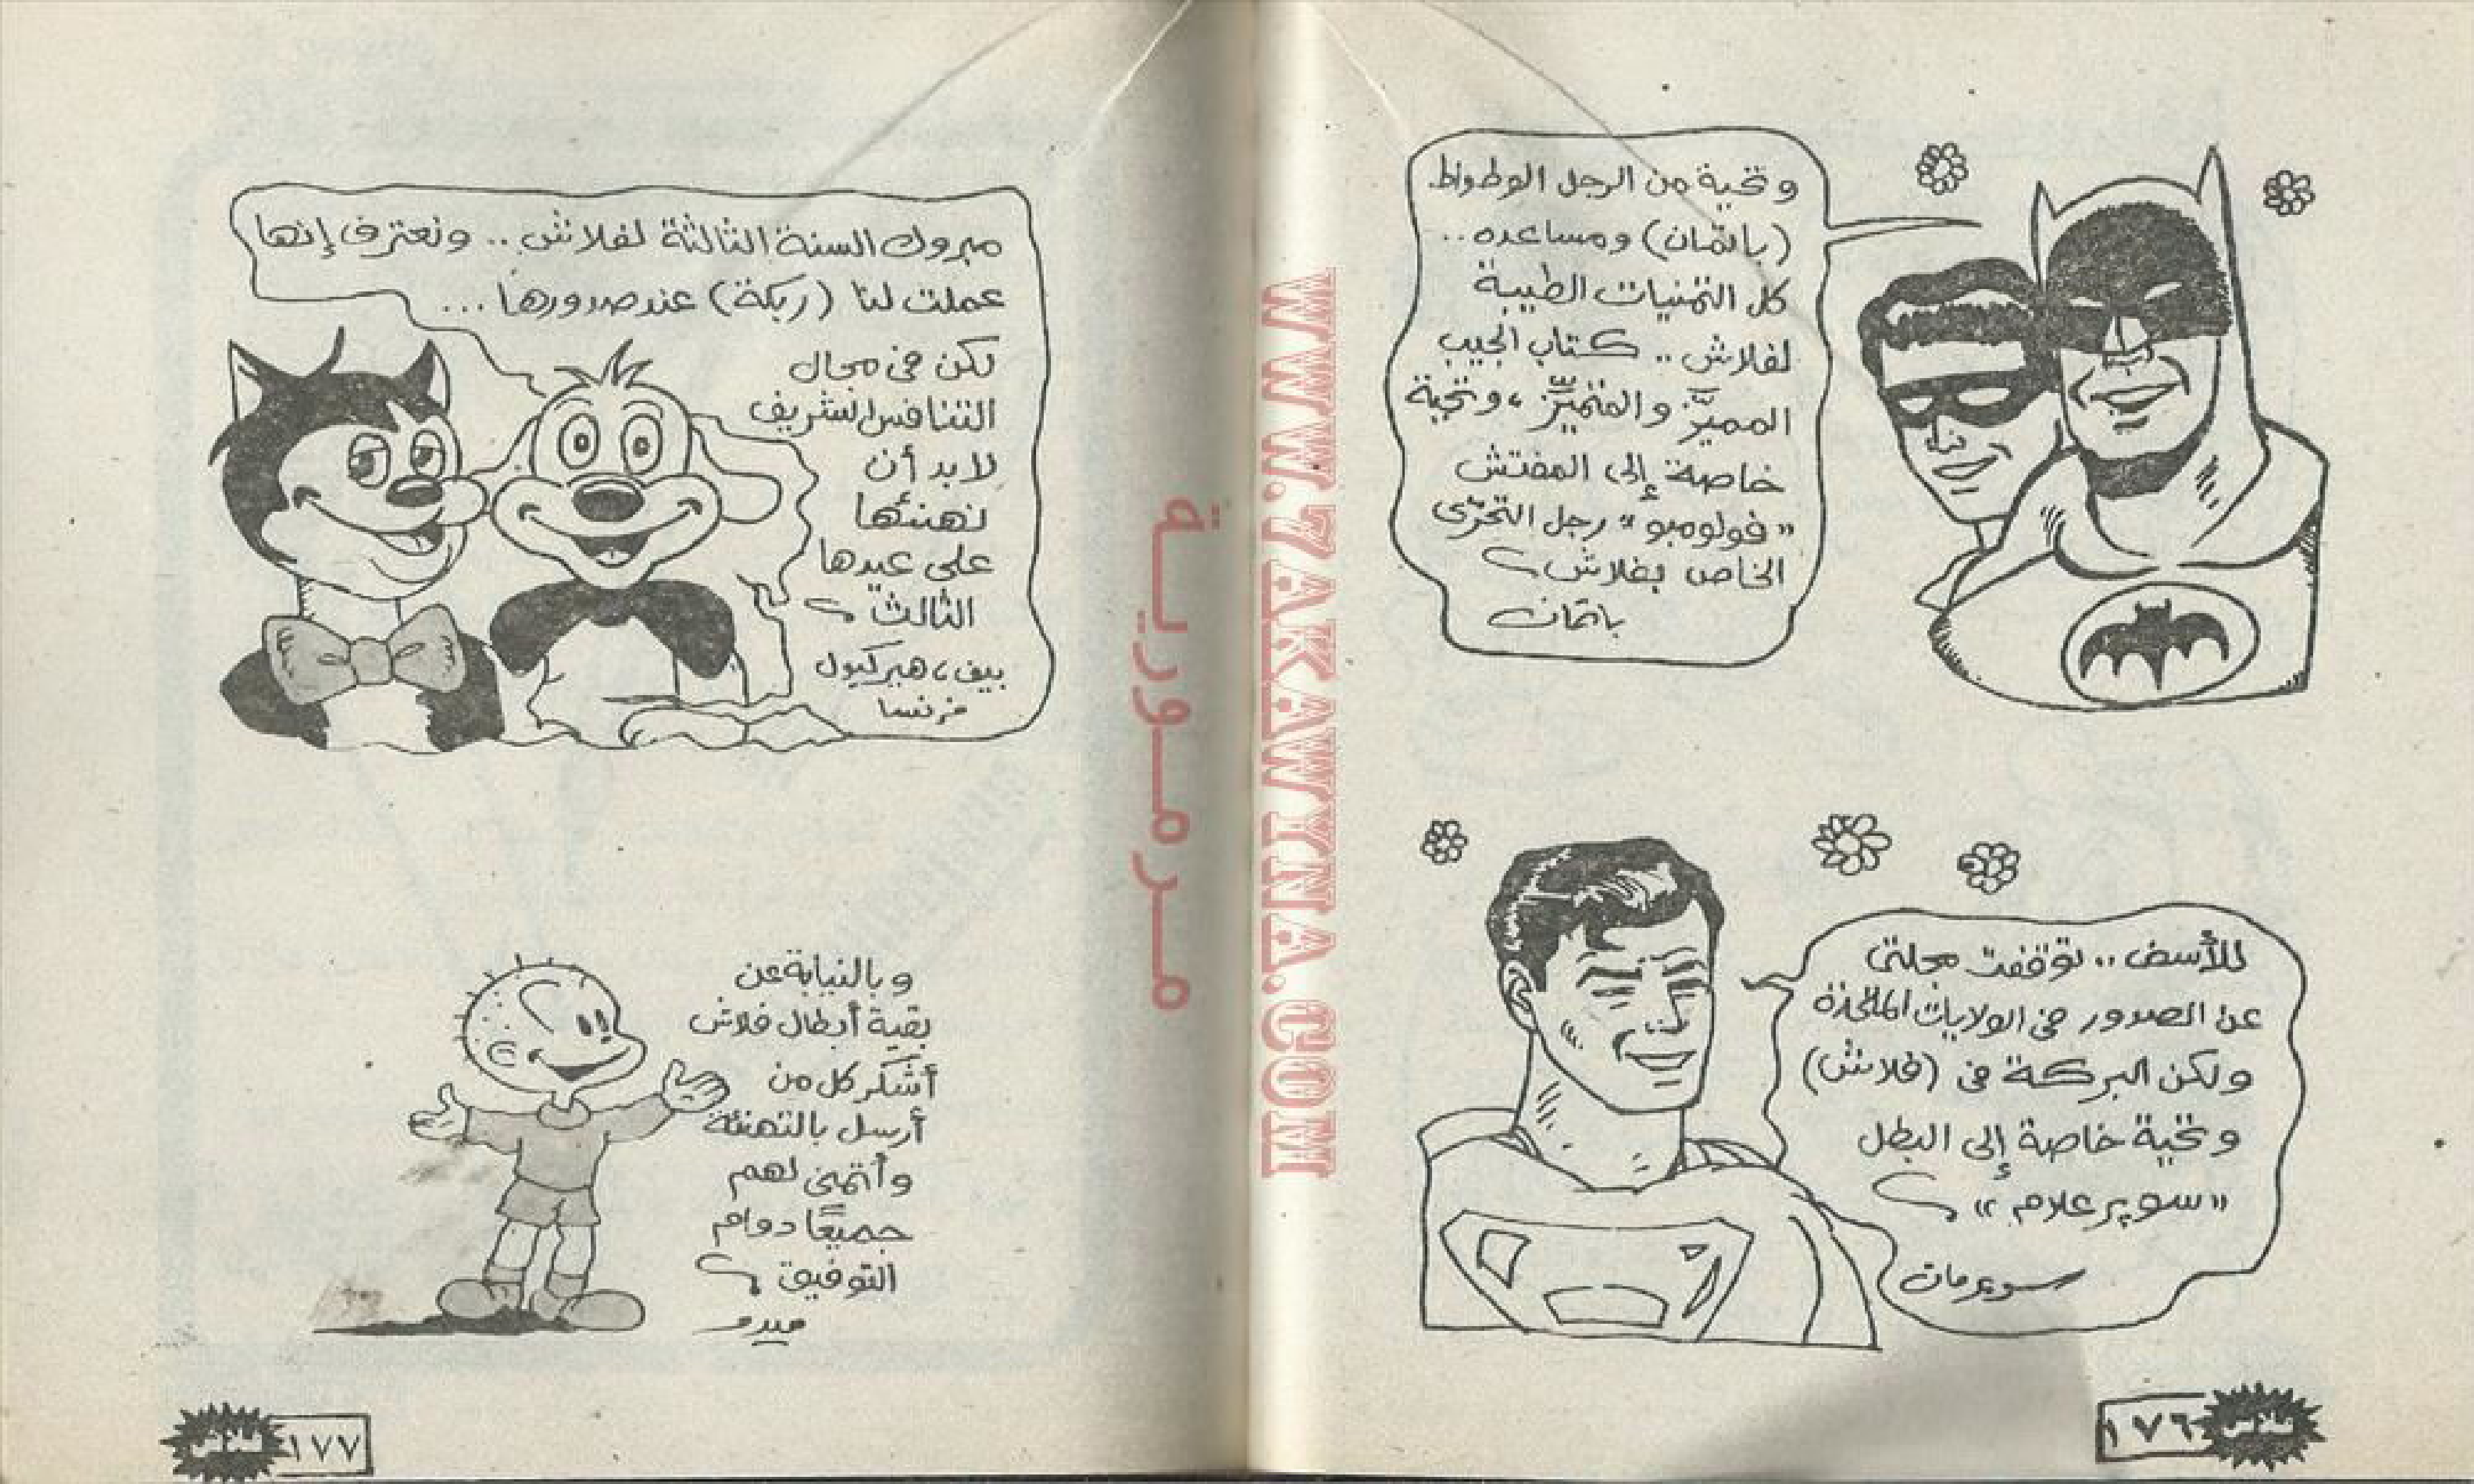 وتحية من الرجل الوطواط.
(باتمان) ومساعده..
كل التمنيات الطيبة
لفلاش.. كتاب الجيب
المميَّز والمتميِّز، وتحية
خاصة إلى المفتش
"فولومبو" رجل التحرّى
الخاص بفلاش
باتمان
للأسف.. توقفت مجلتى
عن الصدور فى الولايات المتحدة
ولكن البركة فى (فلاش)
وتحية خاصة إلى البطل
"سوبر علام"
سوبرمان
١٧٦
فلاش
مبروك السنة الثالثة لفلاش.. ونعترف إنها
عملت لنا (ربكة) عند صدورها...
لكن فى مجال
التنافس الشريف
لا بد أن
نهنئها
على عيدها
الثالث
بيف، هيركيول
فرنسا
وبالنيابة عن
بقية أبطال فلاش
أشكر كل من
أرسل بالتهنئة
وأتمنى لهم
جميعًا دوام
التوفيق
ميدو
فلاش
١٧٧
مرمورية
WWW.7AKAWINA.COM